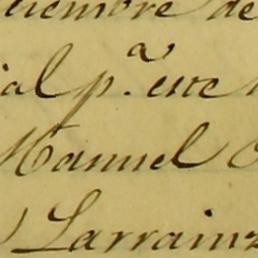 ciembre de
ial p.ª este
Manuel
Larrainz